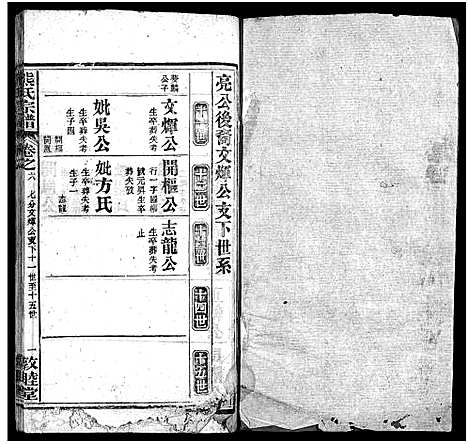 亮公後裔文煇公支下世系
十一世
十二世
十三世
十四世
十五世
癸麟公子
文煇公
生卒葬失考
妣吳公
生卒葬失考
生子四
開樞公
行一字國樞
生卒葬失考
妣方氏
生卒葬失考
生子一
志龍
志龍公
生卒葬失考
止
熊氏宗譜
卷之六
七分文煇公支下十一世至十五世
一
敦睦堂